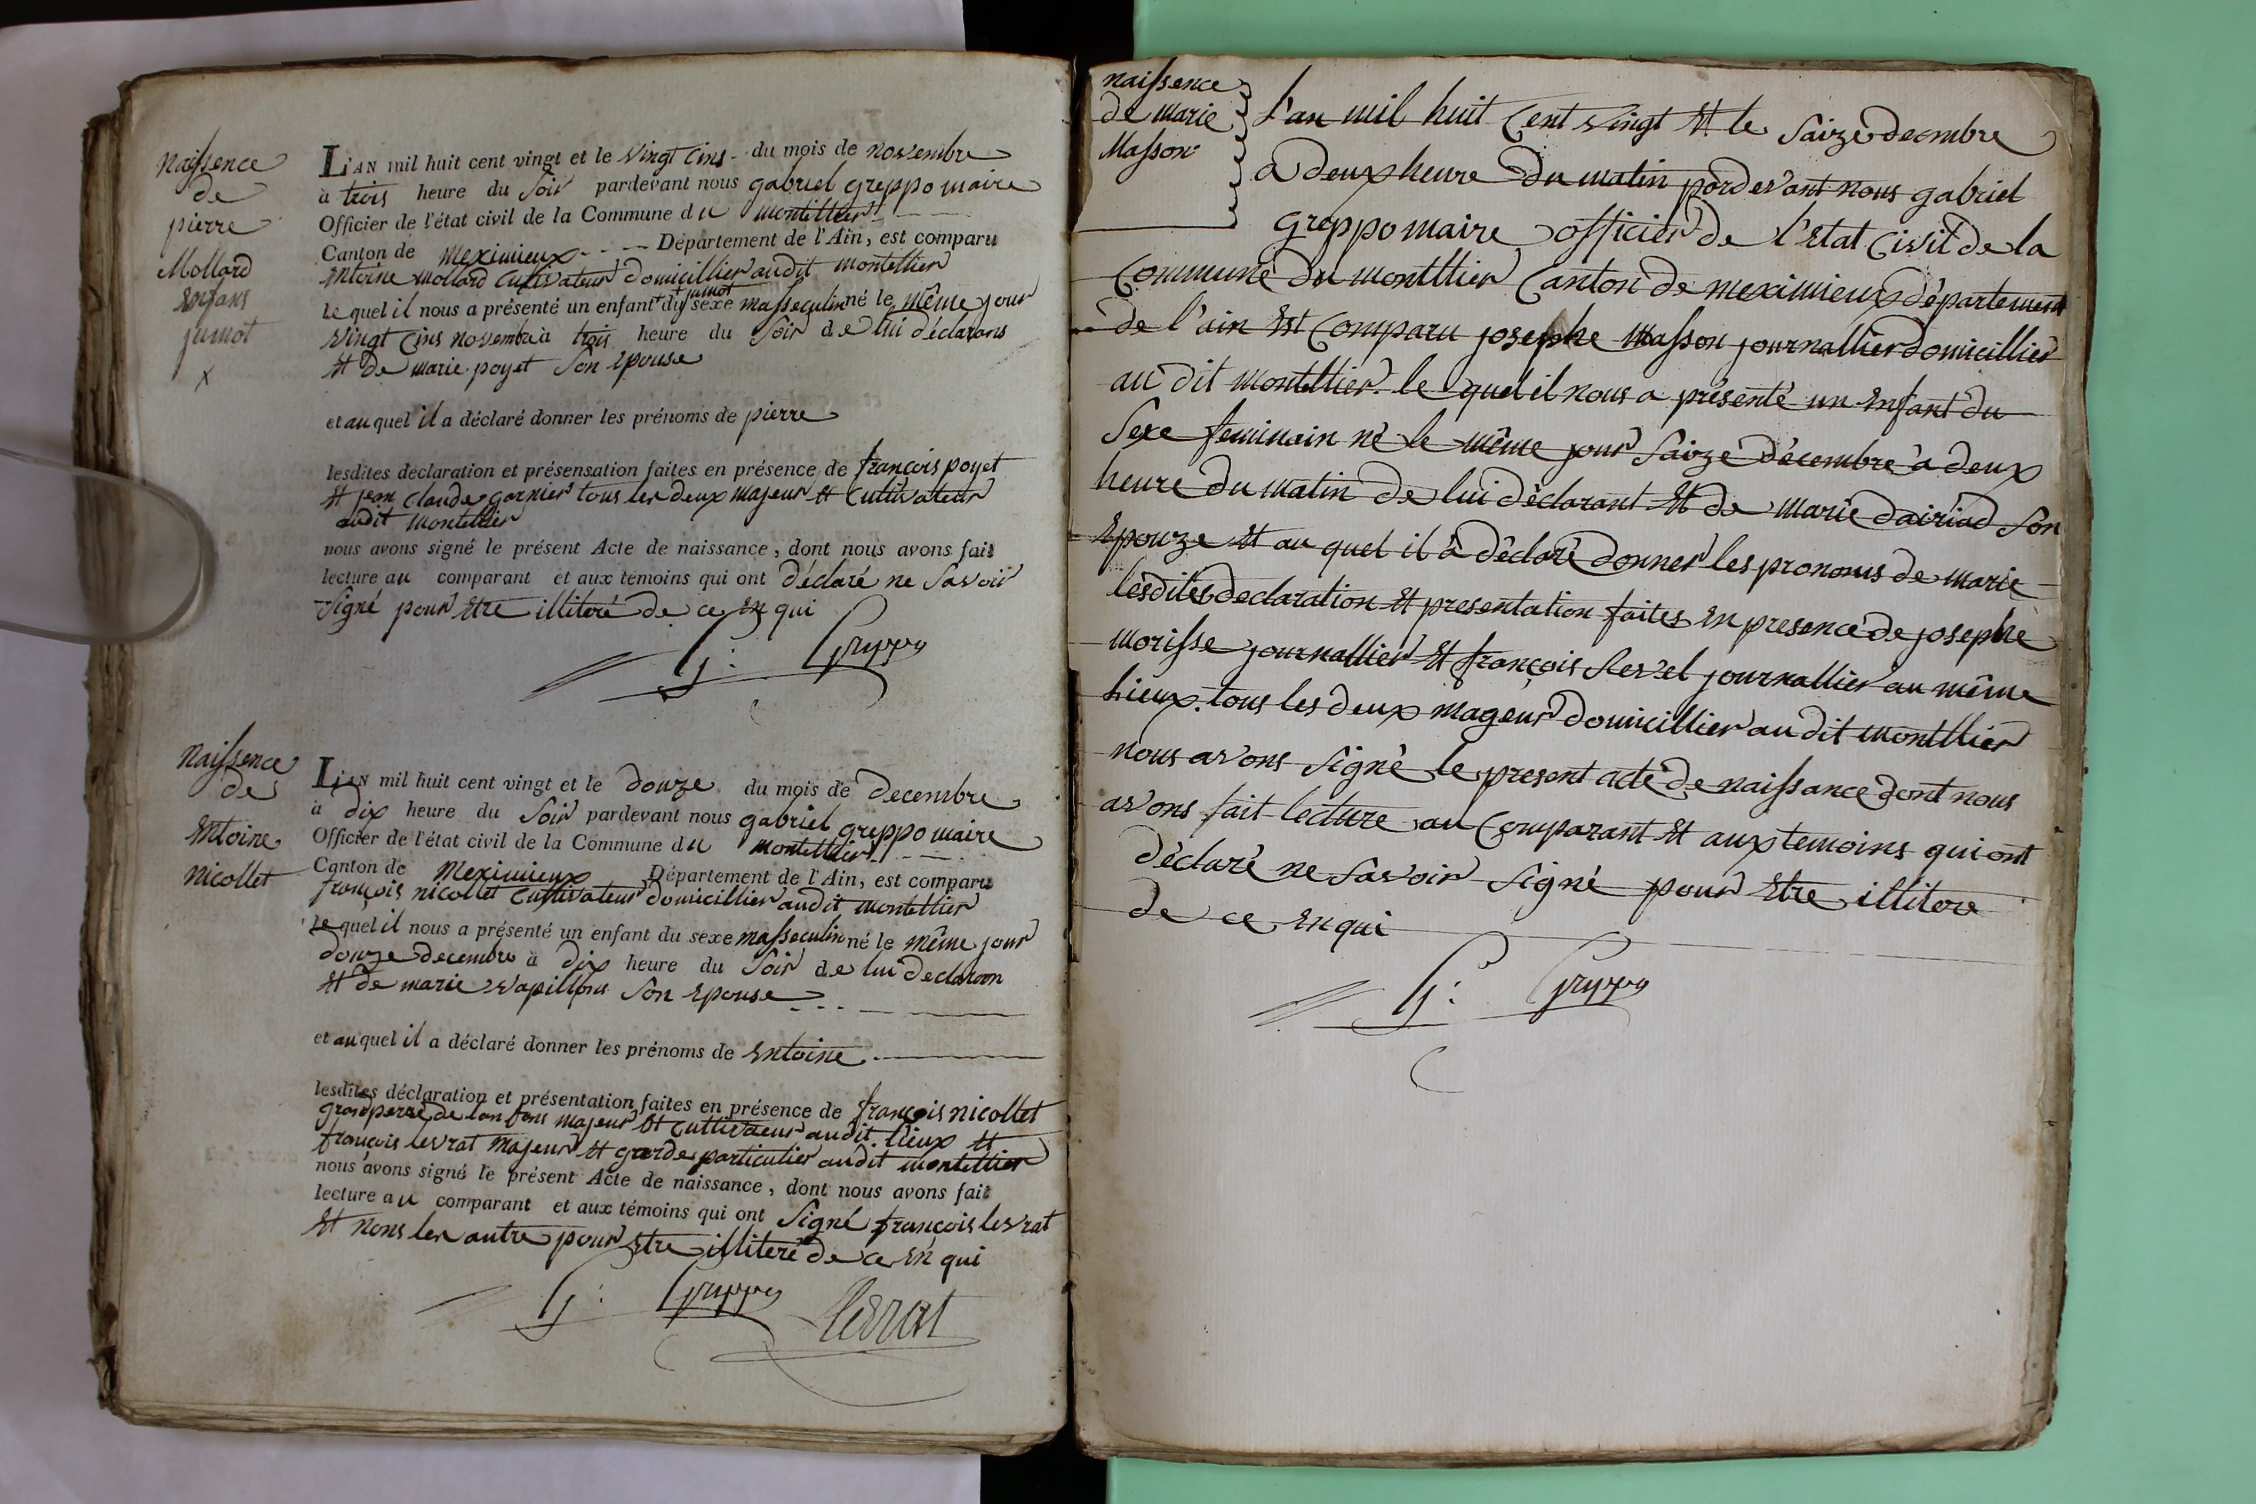 naissence
de
pierre
Mollard
enfans
jumot
x
L'AN mil huit cent vingt et le vingt cins du mois de novembre
à trois heure du soir pardevant nous gabriel greppo maire
Officier de l'état civil de la Commune du montellier
Canton de meximieux Département de l'Ain, est comparu
entoine mollard cultivateur domicillier audit montellier
jumot
le quel il nous a présenté un enfant + du sexe masseculin né le même jour
vingt cins novembre à trois heure du soir de lui déclarans
et de marie poyet son epouse
et auquel il a déclaré donner les prénoms de pierre
lesdites déclaration et présensation faites en présence de françois poyet
et jean claude garnier tous les deux majeur et cultivateur
audit montellier
nous avons signé le présent Acte de naissance, dont nous avons fait
lecture au comparant et aux témoins qui ont déclaré ne savoir
signé pour etre illiteré de ce en qui
G: Greppo
naissence
de
entoine
nicollet
L'AN mil huit cent vingt et le douze du mois de decembre
à dix heure du soir pardevant nous gabriel greppo maire
Officier de l'état civil de la Commune du montellier
Canton de meximieux Département de l'Ain, est comparu
françois nicollet cultivateur domicillier audit montellier
le quel il nous a présenté un enfant du sexe masseculin né le même jour
douze decembre à dix heure du soir de lui declaran
et de marie vapillon son epouse
et auquel il a déclaré donner les prénoms de entoine
lesdites déclaration et présentation faites en présence de françois nicollet
grand perre de lan fans majeur et cultivateur audit lieux et
françois levrat majeur et garde particulier audit montellier
nous avons signé le présent Acte de naissance, dont nous avons fait
lecture au comparant et aux témoins qui ont signé françois levrat
et nons les autre pour etre illiteré de ce en qui
G: Greppo
levrat
naissence
de marie
Masson
l'an mil huit cent vingt et le saize decmbre
a deux heure du matin pardevant nous gabriel
greppo maire officier de l'etat civil de la
commune du montllier canton de meximieux département
de l'ain est comparu josephe masson journallier domicillier
au dit montellier. le quel il nous a présenté un enfant du
sexe feminain né le même jour saize décembre à deux
heure du matin de lui déclarant et de marie dairiad son
epouze et au quel il à déclaré donner les pronoms de marie
lesdites declaration et presentation faites en presence de josephe
morisse journallier et françois Rervel journallier au même
lieux. tous les deux mageur domicillier au dit montllier
nous avons signé le present acte de naissance dont nous
avons fait lecture au comparant et aux temoins qui ont
déclaré ne savoir signé pour etre illitere
de ce en qui
G: Greppo